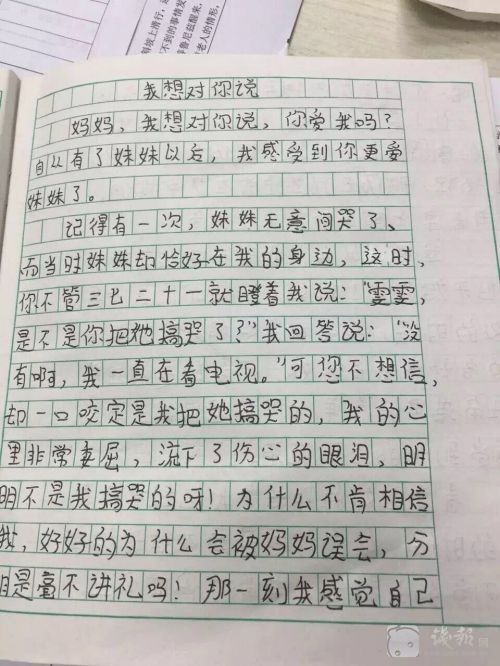 斜坡上滑行,
不到的事情发
鲁尼兹醒来,
老人的情形,
我想对你说
妈妈，我想对你说，你爱我吗？
自从有了妹妹以后，我感受到你更爱
妹妹了。
记得有一次，妹妹无意间哭了、
而当时妹妹却恰好在我的身边，这时，
你不管三七二十一就瞪着我说：“雯雯，
是不是你把她搞哭了？”我回答说：“没
有啊，我一直在看电视。”可您不想信，
却一口咬定是我把她搞哭的，我的心
里非常委屈，流下了伤心的眼泪，明
明不是我搞哭的呀！为什么不肯相信
我，好好的为什么会被妈妈误会，分
明是毫不讲礼吗！那一刻我感觉自己
钱报网